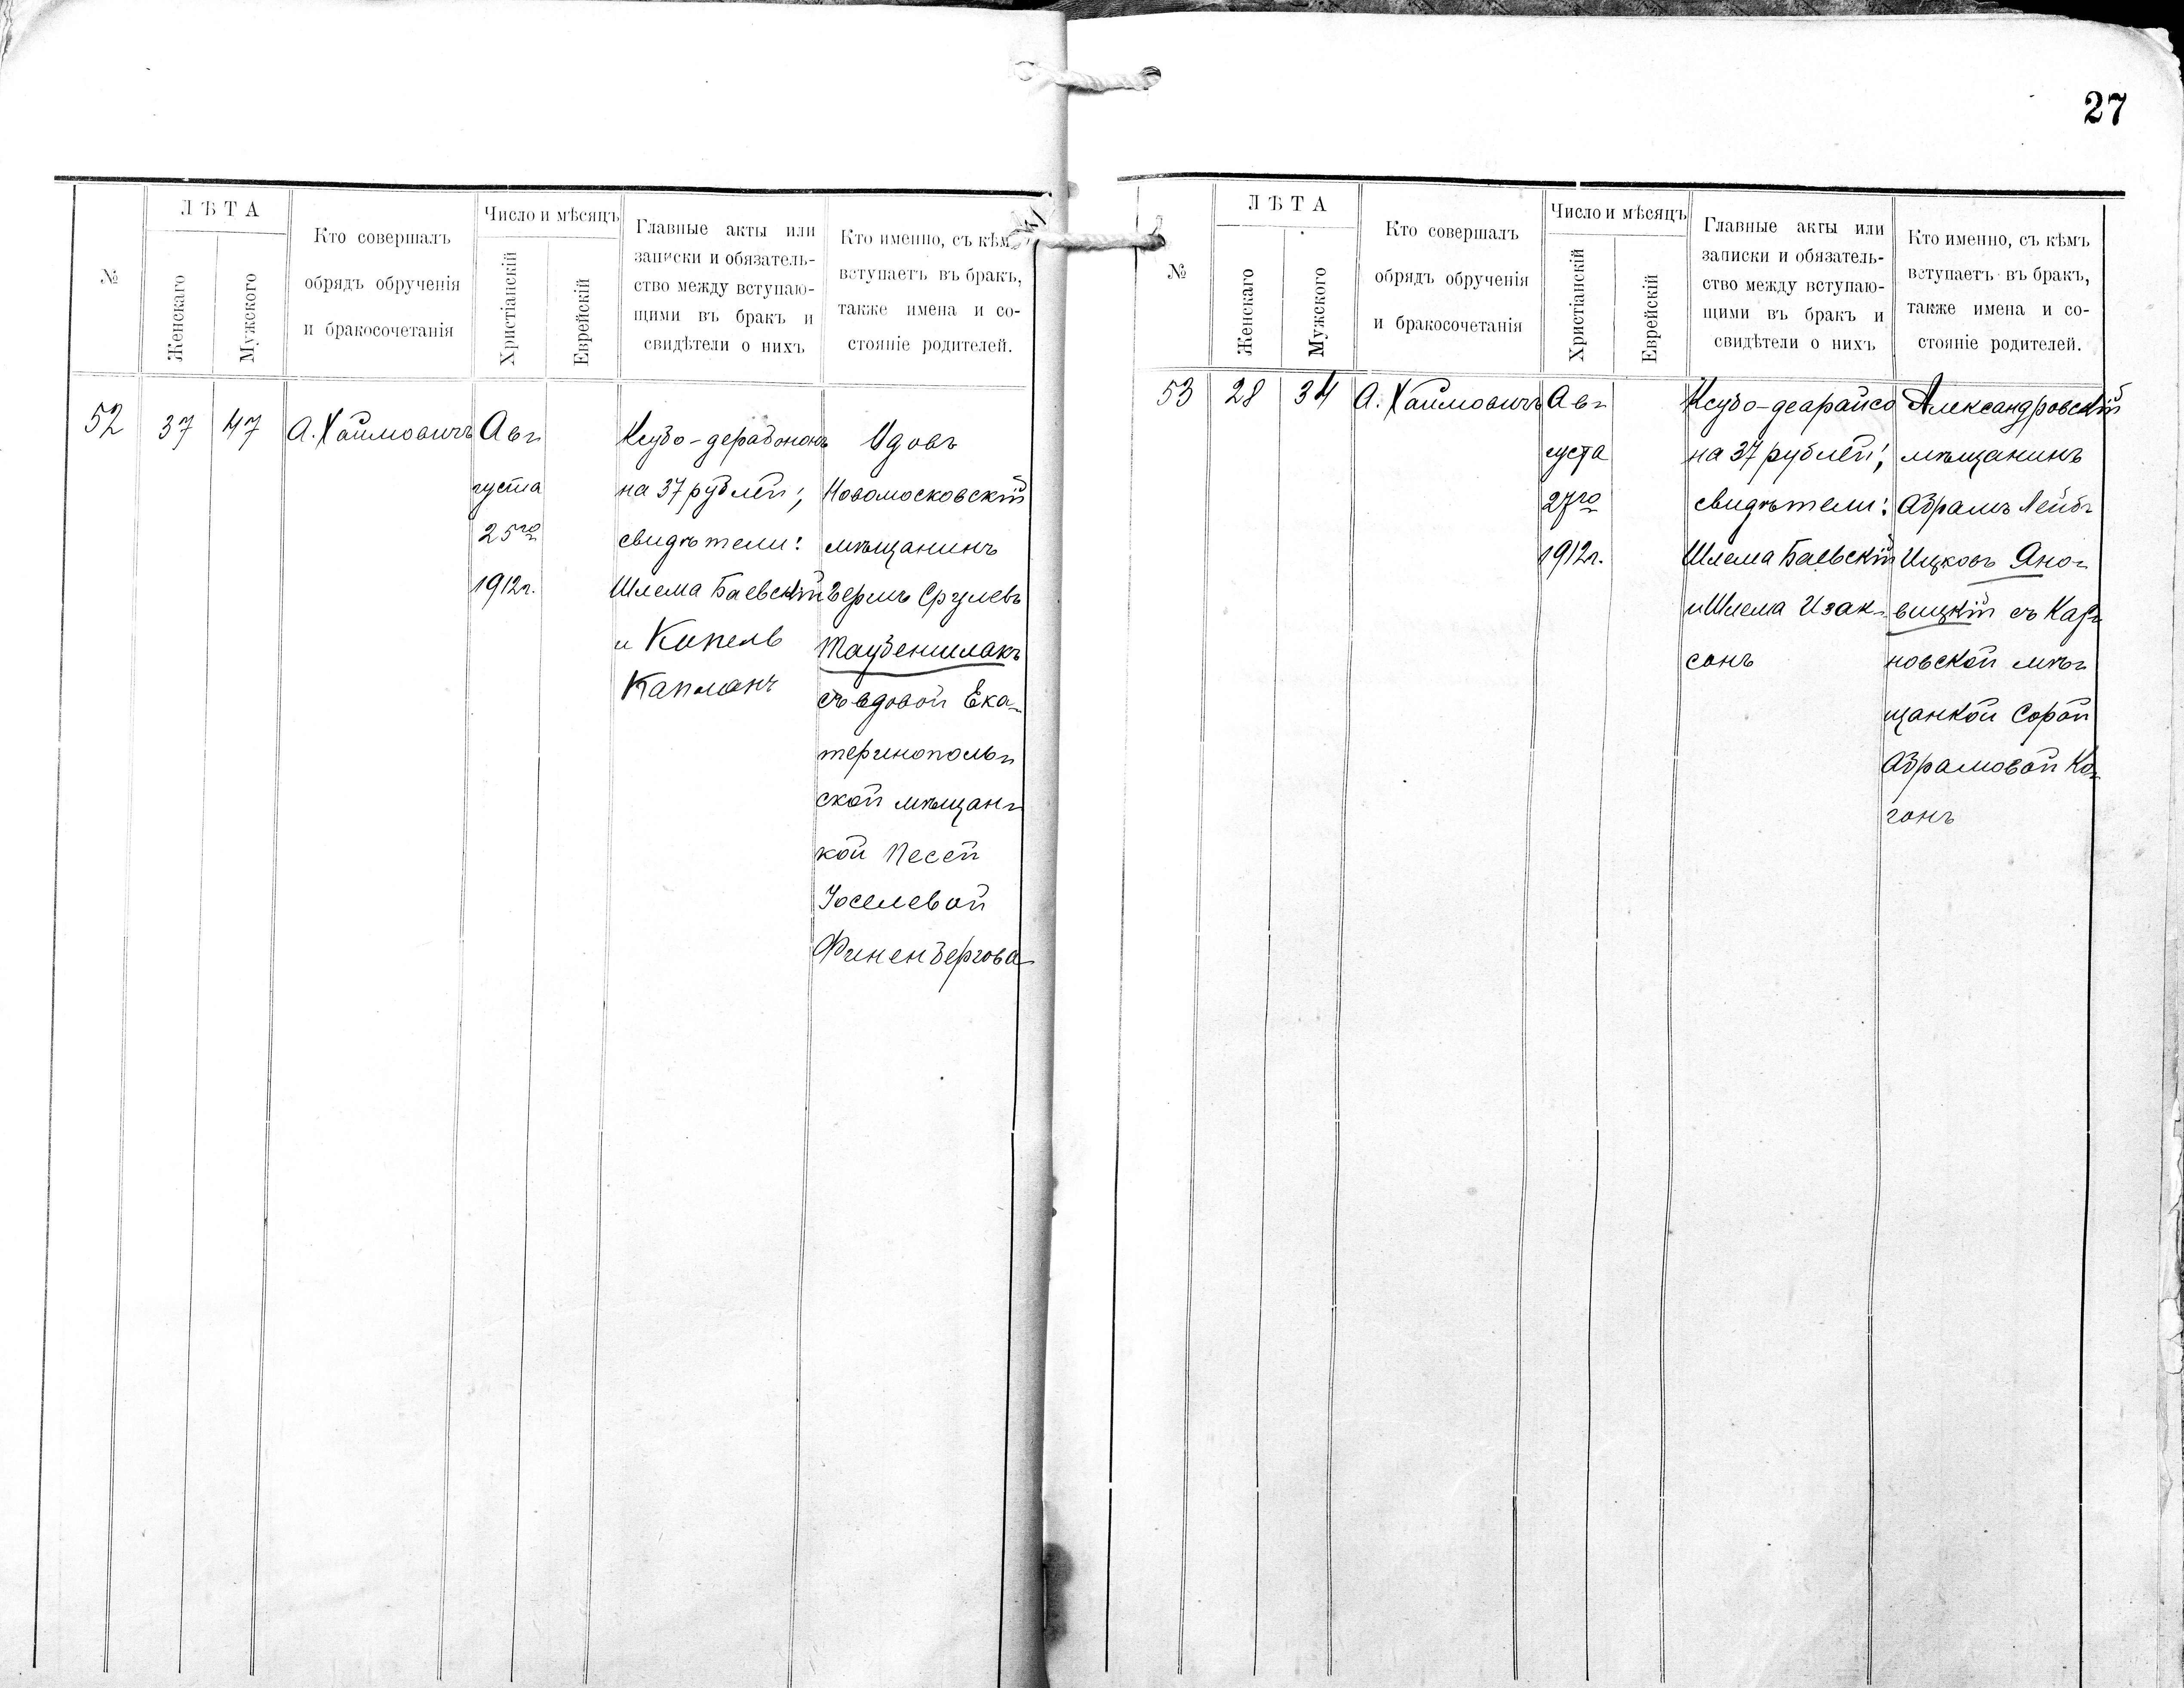 27
№
ЛѢТА
Женскаго
Мужского
Кто совершалъ
обрядъ обрученія
и бракосочетанія
Число и мѣсяцъ
Христіанскій
Еврейскій
Главные акты или
записки и обязатель-
ство между вступаю-
щими въ бракъ и
свидѣтели о нихъ
Кто именно, съ кѣмъ
вступаетъ въ бракъ,
также имена и со-
стояніе родителей.
52
37
47
А. Хаимовичъ
Ав-
густа
25го
1912г.
Ксубо-дерабононъ
на 37 рублей;
свидѣтели:
Шлема Баевскій
и Копель
Капланъ
Вдовъ
Новомосковскій
мѣщанинъ
Берль Срулевъ
Таубеншлакъ
съ вдовой Ека-
теринополь-
ской мѣщан-
кой Песей
Іоселевой
Финенбергова
№
ЛѢТА
Женскаго
Мужского
Кто совершалъ
обрядъ обрученія
и бракосочетанія
Число и мѣсяцъ
Христіанскій
Еврейскій
Главные акты или
записки и обязатель-
ство между вступаю-
щими въ бракъ и
свидѣтели о нихъ
Кто именно, съ кѣмъ
вступаетъ въ бракъ,
также имена и со-
стояніе родителей.
53
28
34
А. Хаимовичъ
Ав-
густа
27го
1912г.
Ксубо-деарайсо
на 37 рублей;
свидѣтели:
Шлема Баевскій
и Шлема Изак-
сонъ
Александровскій
мѣщанинъ
Абрамъ Лейб-
Ицковъ Яно-
вицкій съ Кар-
новской мѣ-
щанкой Сорой
Абрамовой Ко-
гонъ